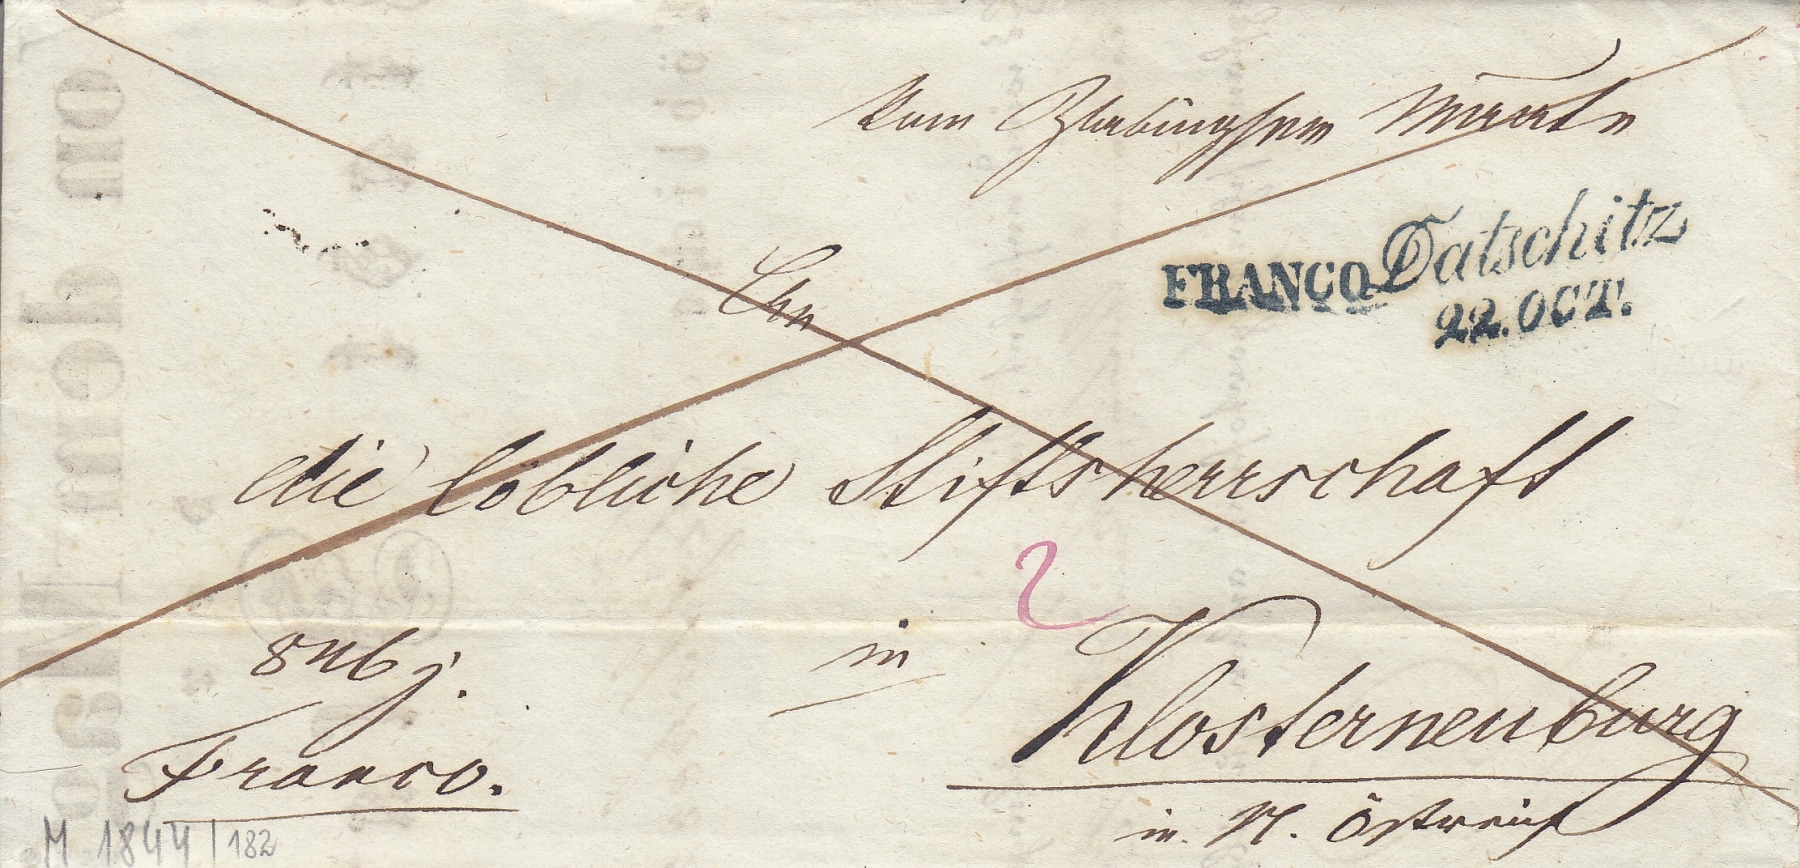 Vom Zlabingser Amte
FRANCO Datschitz
22. OCT.
An
die löbliche Stiftsherrschaft
2
in
Klosterneuburg
in N. Östreich
Franco.
M 1844/182